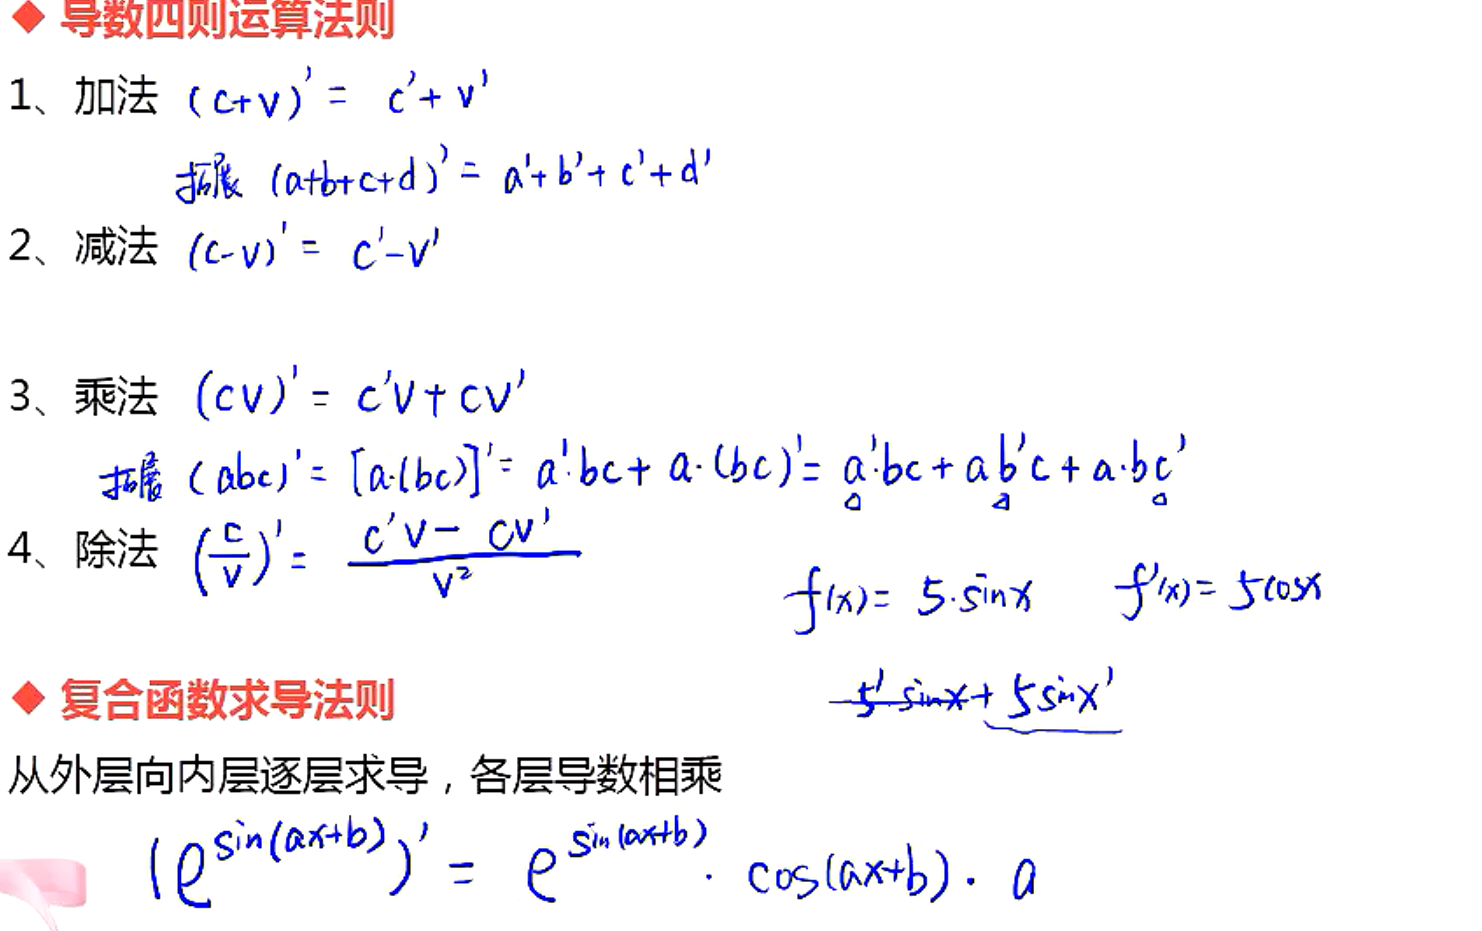 ◆ 导数四则运算法则
1、加法 (c+v)' = c'+v'
拓展 (a+b+c+d)' = a'+b'+c'+d'
2、减法 (c-v)' = c'-v'
3、乘法 (cv)' = c'v+cv'
拓展 (abc)' = [a·(bc)]' = a'·bc + a·(bc)' = a'·bc + ab'c + a·bc'
4、除法 (c/v)' = (c'v - cv')/v²
f(x) = 5·sinx f'(x) = 5cosx
5' sinx + 5sinx'
◆ 复合函数求导法则
从外层向内层逐层求导，各层导数相乘
(e^sin(ax+b))' = e^sin(ax+b) · cos(ax+b) · a